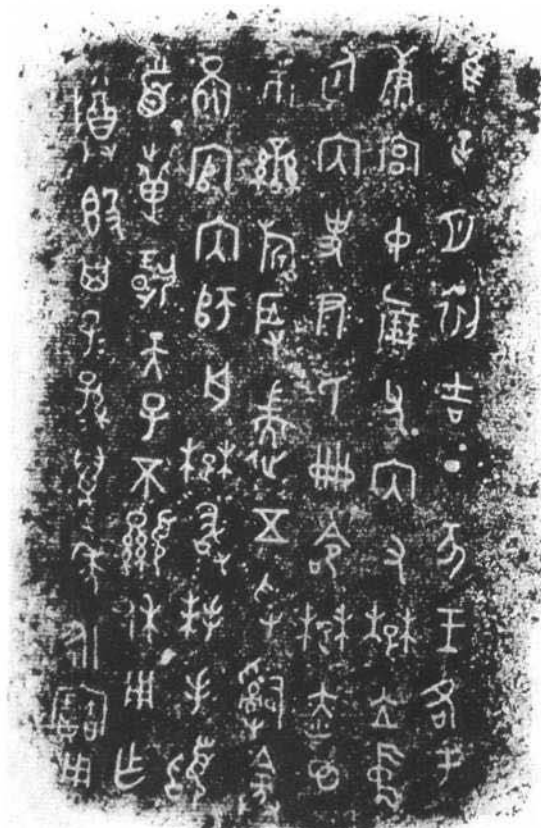 隹正月初吉丁亥王各于
康宮中倗父內又楚立中
廷內史尹氏冊令楚赤𢁉
巿䜌旂取遄五寽𤔲䇂
啚官內師舟楚敢拜手𩒨
首疐揚天子不顯休用乍
尊𣪘其子子孫孫萬年永寶用